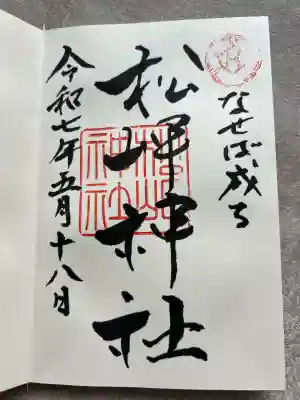 なせば成る
松岬神社
令和七年五月十八日